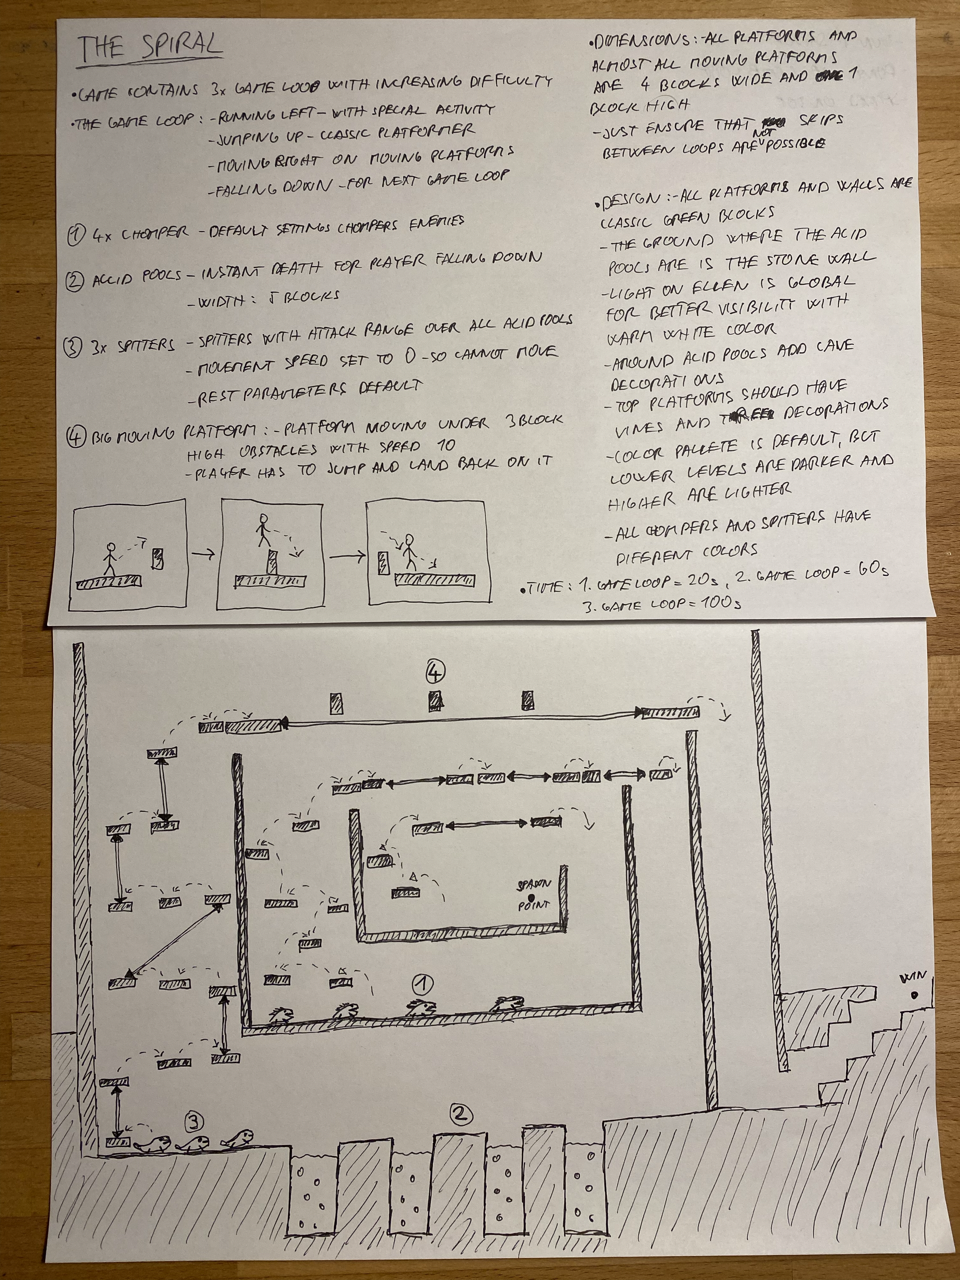 THE SPIRAL
•GAME CONTAINS 3x GAME LOOP WITH INCREASING DIFFICULTY
•THE GAME LOOP : -RUNNING LEFT - WITH SPECIAL ACTIVITY
-JUMPING UP - CLASSIC PLATFORMER
-MOVING RIGHT ON MOVING PLATFORMS
-FALLING DOWN - FOR NEXT GAME LOOP
① 4x CHOMPER - DEFAULT SETTINGS CHOMPERS ENEMIES
② ACCID POOLS - INSTANT DEATH FOR PLAYER FALLING DOWN
-WIDTH : 5 BLOCKS
③ 3x SPITTERS - SPITTERS WITH ATTACK RANGE OVER ALL ACID POOLS
- MOVEMENT SPEED SET TO 0 - SO CANNOT MOVE
- REST PARAMETERS DEFAULT
④ BIG MOVING PLATFORM : - PLATFORM MOVING UNDER 3 BLOCK
HIGH OBSTACLES WITH SPEED 10
- PLAYER HAS TO JUMP AND LAND BACK ON IT
•DIMENSIONS : -ALL PLATFORMS AND
ALMOST ALL MOVING PLATFORMS
ARE 4 BLOCKS WIDE AND 1
BLOCK HIGH
-JUST ENSURE THAT SKIPS
BETWEEN LOOPS ARE NOT POSSIBLE
•DESIGN : -ALL PLATFORMS AND WALLS ARE
CLASSIC GREEN BLOCKS
-THE GROUND WHERE THE ACID
POOLS ARE IS THE STONE WALL
-LIGHT ON ELLEN IS GLOBAL
FOR BETTER VISIBILITY WITH
WARM WHITE COLOR
-AROUND ACID POOLS ADD CAVE
DECORATIONS
-TOP PLATFORMS SHOULD HAVE
VINES AND TREE DECORATIONS
-COLOR PALLETE IS DEFAULT, BUT
LOWER LEVELS ARE DARKER AND
HIGHER ARE LIGHTER
-ALL CHOMPERS AND SPITTERS HAVE
DIFFERENT COLORS
•TIME : 1. GAME LOOP = 20s , 2. GAME LOOP = 60s
3. GAME LOOP = 100s
④
SPAWN
POINT
①
WIN
③
②